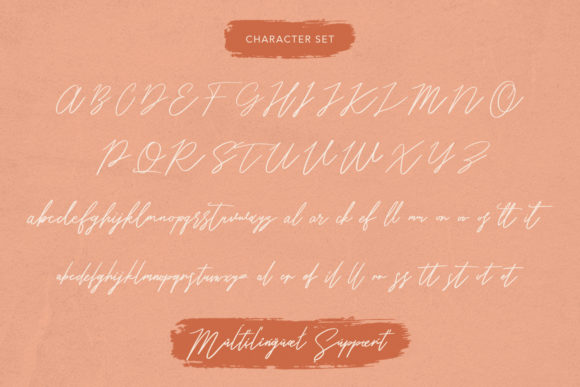 CHARACTER SET
A B C D E F G H I J K L M N O
P Q R S T U V W X Y Z
abcdefghijklmnopqrstuvwxyz al ar ck ef ll on of tt it
abcdefghijklmnopqrstuvwxyz al or of il ll ss tt st ut et
Multilingual Support